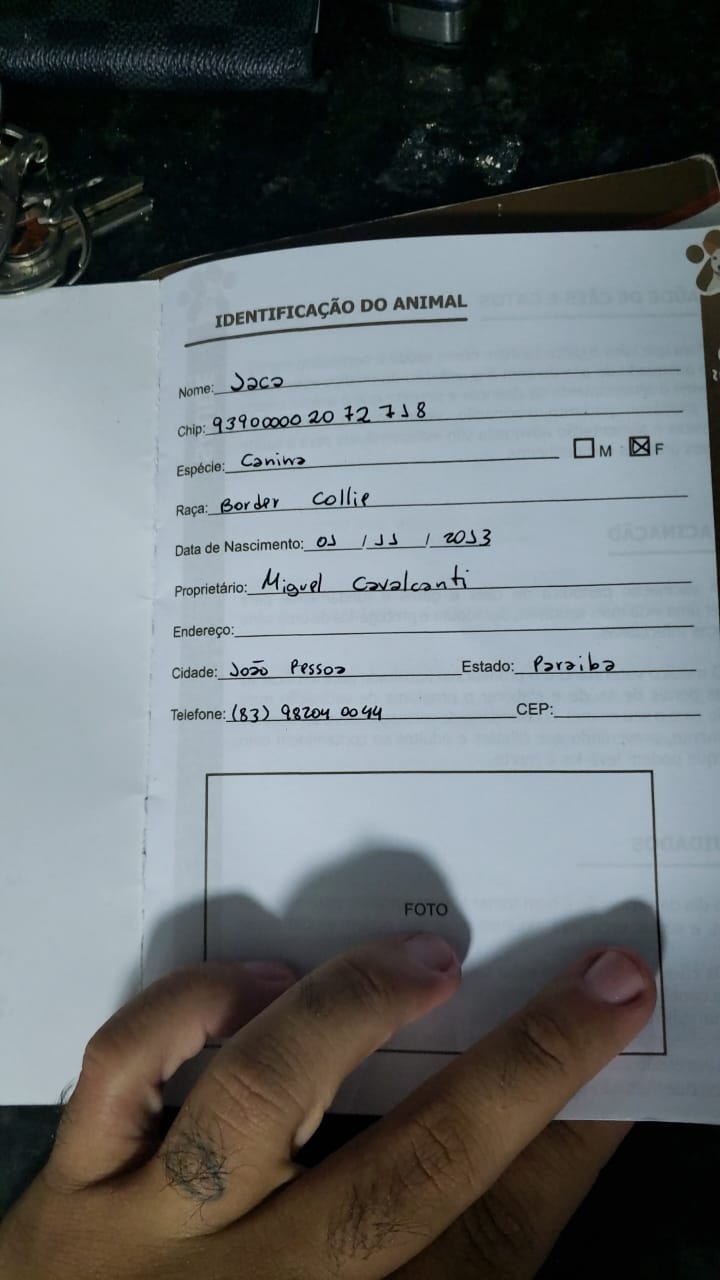 IDENTIFICAÇÃO DO ANIMAL
Nome: Jaca
Chip: 93900000 20 72 718
Espécie: Canina ☐ M ☒ F
Raça: Border Collie
Data de Nascimento: 01 / 11 / 2013
Proprietário: Miguel Cavalcanti
Endereço:
Cidade: João Pessoa Estado: Paraiba
Telefone: (83) 98204 0044 CEP:
FOTO